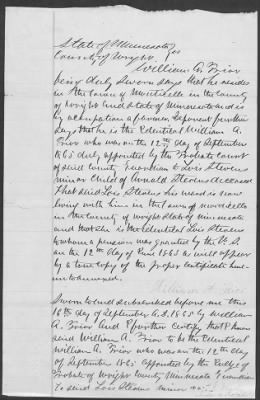 State of Minnesota } ss
County of Wright
William A. Prior
being duly sworn says that he resides
in the town of Monticello in the County
of Wright and State of Minnesota and is
by occupation a farmer, deponent further
says that he is the identical William A.
Prior who was on the 12th day of September
1865 duly appointed by the Probate Court
of said County Guardian to Lois Stevens
minor Child of Stevens deceased
that said Lois Stevens his ward is now
living with him in the town of Monticello
in the County of Wright State of Minnesota
and that she is the identical Lois Stevens
to whom a pension was granted by the U.S.
on the 12th day of June 1865 as will appear
by a true copy of the proper certificate here-
in annexed.
William A.
Sworn to and subscribed before me this
16th day of September A.D. 1865 by William
A. Prior and I further certify that I know
said William A. Prior to be the identical
William A. Prior who was on the 12th day
of September 1865 appointed by the Judge of
Probate of Wright County Minnesota Guardian
to said Lois Stevens minor